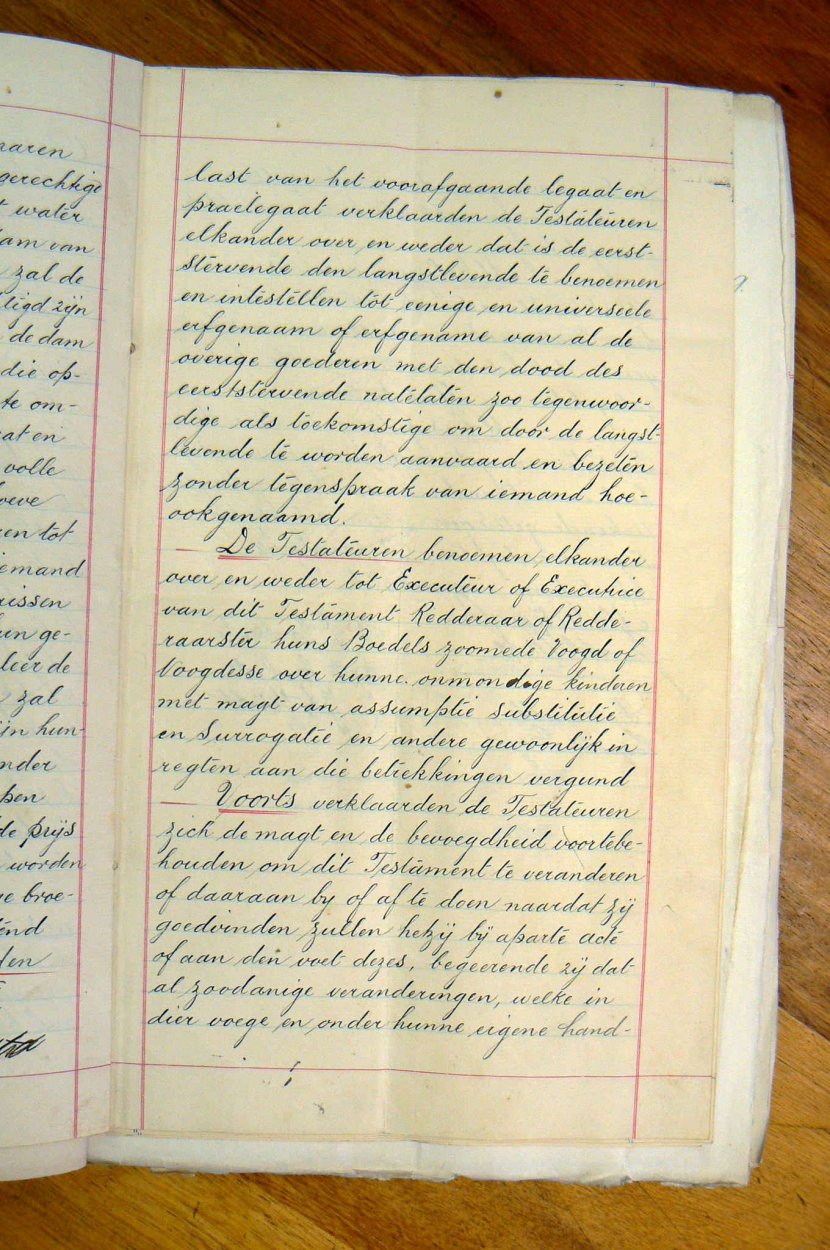 naren
gerechtige
t water
am van
zal de
tigd zijn
de dam
die op-
te om-
aat en
volle
oeve
en tot
iemand
rissen
un ge-
leer de
zal
ijn hun-
nder
pen
de prijs
worden
ge broe-
end
den
last van het voorafgaande legaat en
praelegaat verklaarden de Testateuren
elkander over en weder dat is de eerst-
stervende den langstlevende te benoemen
en intestellen tot eenige en universeele
erfgenaam of erfgename van al de
overige goederen met den dood des
eerststervende natelaten zoo tegenwoor-
dige als toekomstige om door de langst-
levende te worden aanvaard en bezeten
zonder tegenspraak van iemand hoe-
ookgenaamd.
De Testateuren benoemen elkander
over en weder tot Executeur of Executrice
van dit Testament Redderaar of Redde-
raarster huns Boedels zoomede Voogd of
Voogdesse over hunne onmondige kinderen
met magt van assumptie substitutie
en Surrogatie en andere gewoonlijk in
regten aan die betrekkingen vergund
Voorts verklaarden de Testateuren
zich de magt en de bevoegdheid voortebe-
houden om dit Testament te veranderen
of daaraan by of af te doen naardat zij
goedvinden zullen hetzij bij aparte acte
of aan den voet dezes, begeerende zij dat
al zoodanige veranderingen, welke in
dier voege en onder hunne eigene hand-